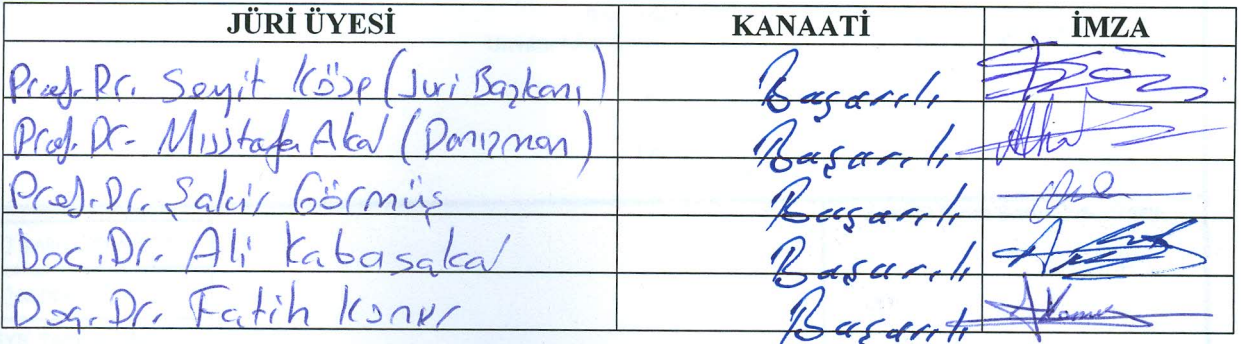 JÜRİ ÜYESİ KANAATİ İMZA
Prof. Dr. Seyit Köse (Juri Başkanı) Başarılı
Prof. Dr. Mustafa Akal (Danışman) Başarılı
Prof. Dr. Şakir Görmüş Başarılı
Doç. Dr. Ali Kabasakal Başarılı
Doç. Dr. Fatih Konur Başarılı